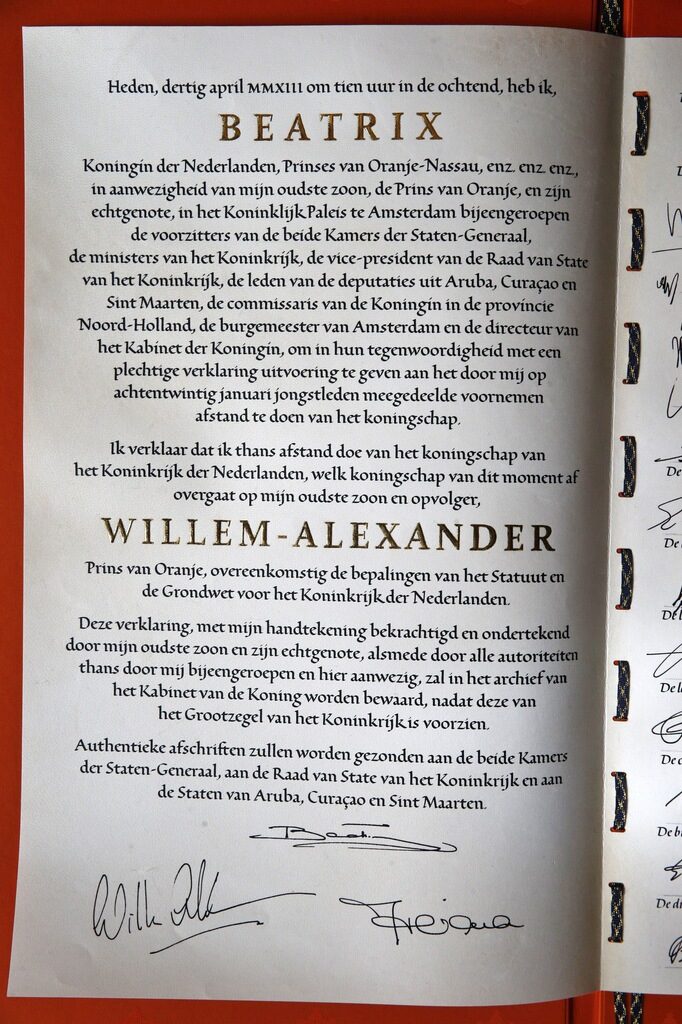 Heden, dertig april MMXIII om tien uur in de ochtend, heb ik,
BEATRIX
Koningin der Nederlanden, Prinses van Oranje-Nassau, enz. enz. enz.,
in aanwezigheid van mijn oudste zoon, de Prins van Oranje, en zijn
echtgenote, in het Koninklijk Paleis te Amsterdam bijeengeroepen
de voorzitters van de beide Kamers der Staten-Generaal,
de ministers van het Koninkrijk, de vice-president van de Raad van State
van het Koninkrijk, de leden van de deputaties uit Aruba, Curaçao en
Sint Maarten, de commissaris van de Koningin in de provincie
Noord-Holland, de burgemeester van Amsterdam en de directeur van
het Kabinet der Koningin, om in hun tegenwoordigheid met een
plechtige verklaring uitvoering te geven aan het door mij op
achtentwintig januari jongstleden meegedeelde voornemen
afstand te doen van het koningschap.
Ik verklaar dat ik thans afstand doe van het koningschap van
het Koninkrijk der Nederlanden, welk koningschap van dit moment af
overgaat op mijn oudste zoon en opvolger,
WILLEM-ALEXANDER
Prins van Oranje, overeenkomstig de bepalingen van het Statuut en
de Grondwet voor het Koninkrijk der Nederlanden.
Deze verklaring, met mijn handtekening bekrachtigd en ondertekend
door mijn oudste zoon en zijn echtgenote, alsmede door alle autoriteiten
thans door mij bijeengeroepen en hier aanwezig, zal in het archief van
het Kabinet van de Koning worden bewaard, nadat deze van
het Grootzegel van het Koninkrijk is voorzien.
Authentieke afschriften zullen worden gezonden aan de beide Kamers
der Staten-Generaal, aan de Raad van State van het Koninkrijk en aan
de Staten van Aruba, Curaçao en Sint Maarten.
De
De
De